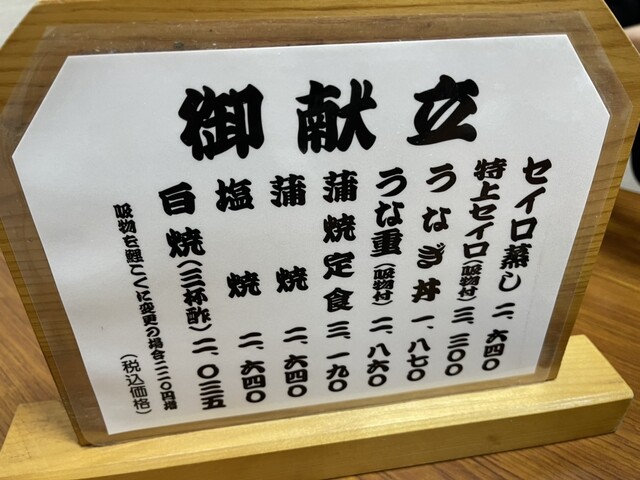 御献立
セイロ蒸し 二、六四〇
特上セイロ(吸物付) 三、三〇〇
うなぎ丼 一、八七〇
うな重(吸物付) 二、八六〇
蒲焼定食 三、一九〇
蒲焼 二、六四〇
塩焼 二、六四〇
白焼(三杯酢) 二、〇三五
吸物を鯉こくに変更の場合、二二〇円増
(税込価格)